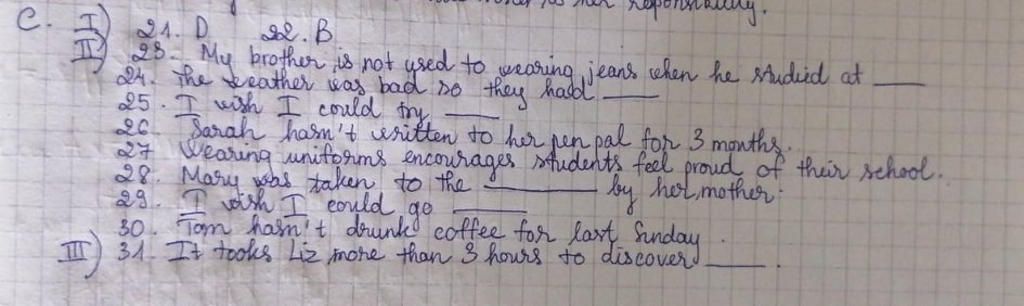 responsibility.
C. I) 21. D 22. B
II) 23. My brother is not used to wearing jeans when he studied at ____
24. The weather was bad so they had ____
25. I wish I could try ____
26. Sarah hasn't written to her pen pal for 3 months.
27 Wearing uniforms encourages students feel proud of their school.
28. Mary was taken to the ____ by her mother.
29. I wish I could go ____
30. Tom hasn't drunk coffee for last Sunday.
III) 31. It tooks Liz more than 3 hours to discover ____.